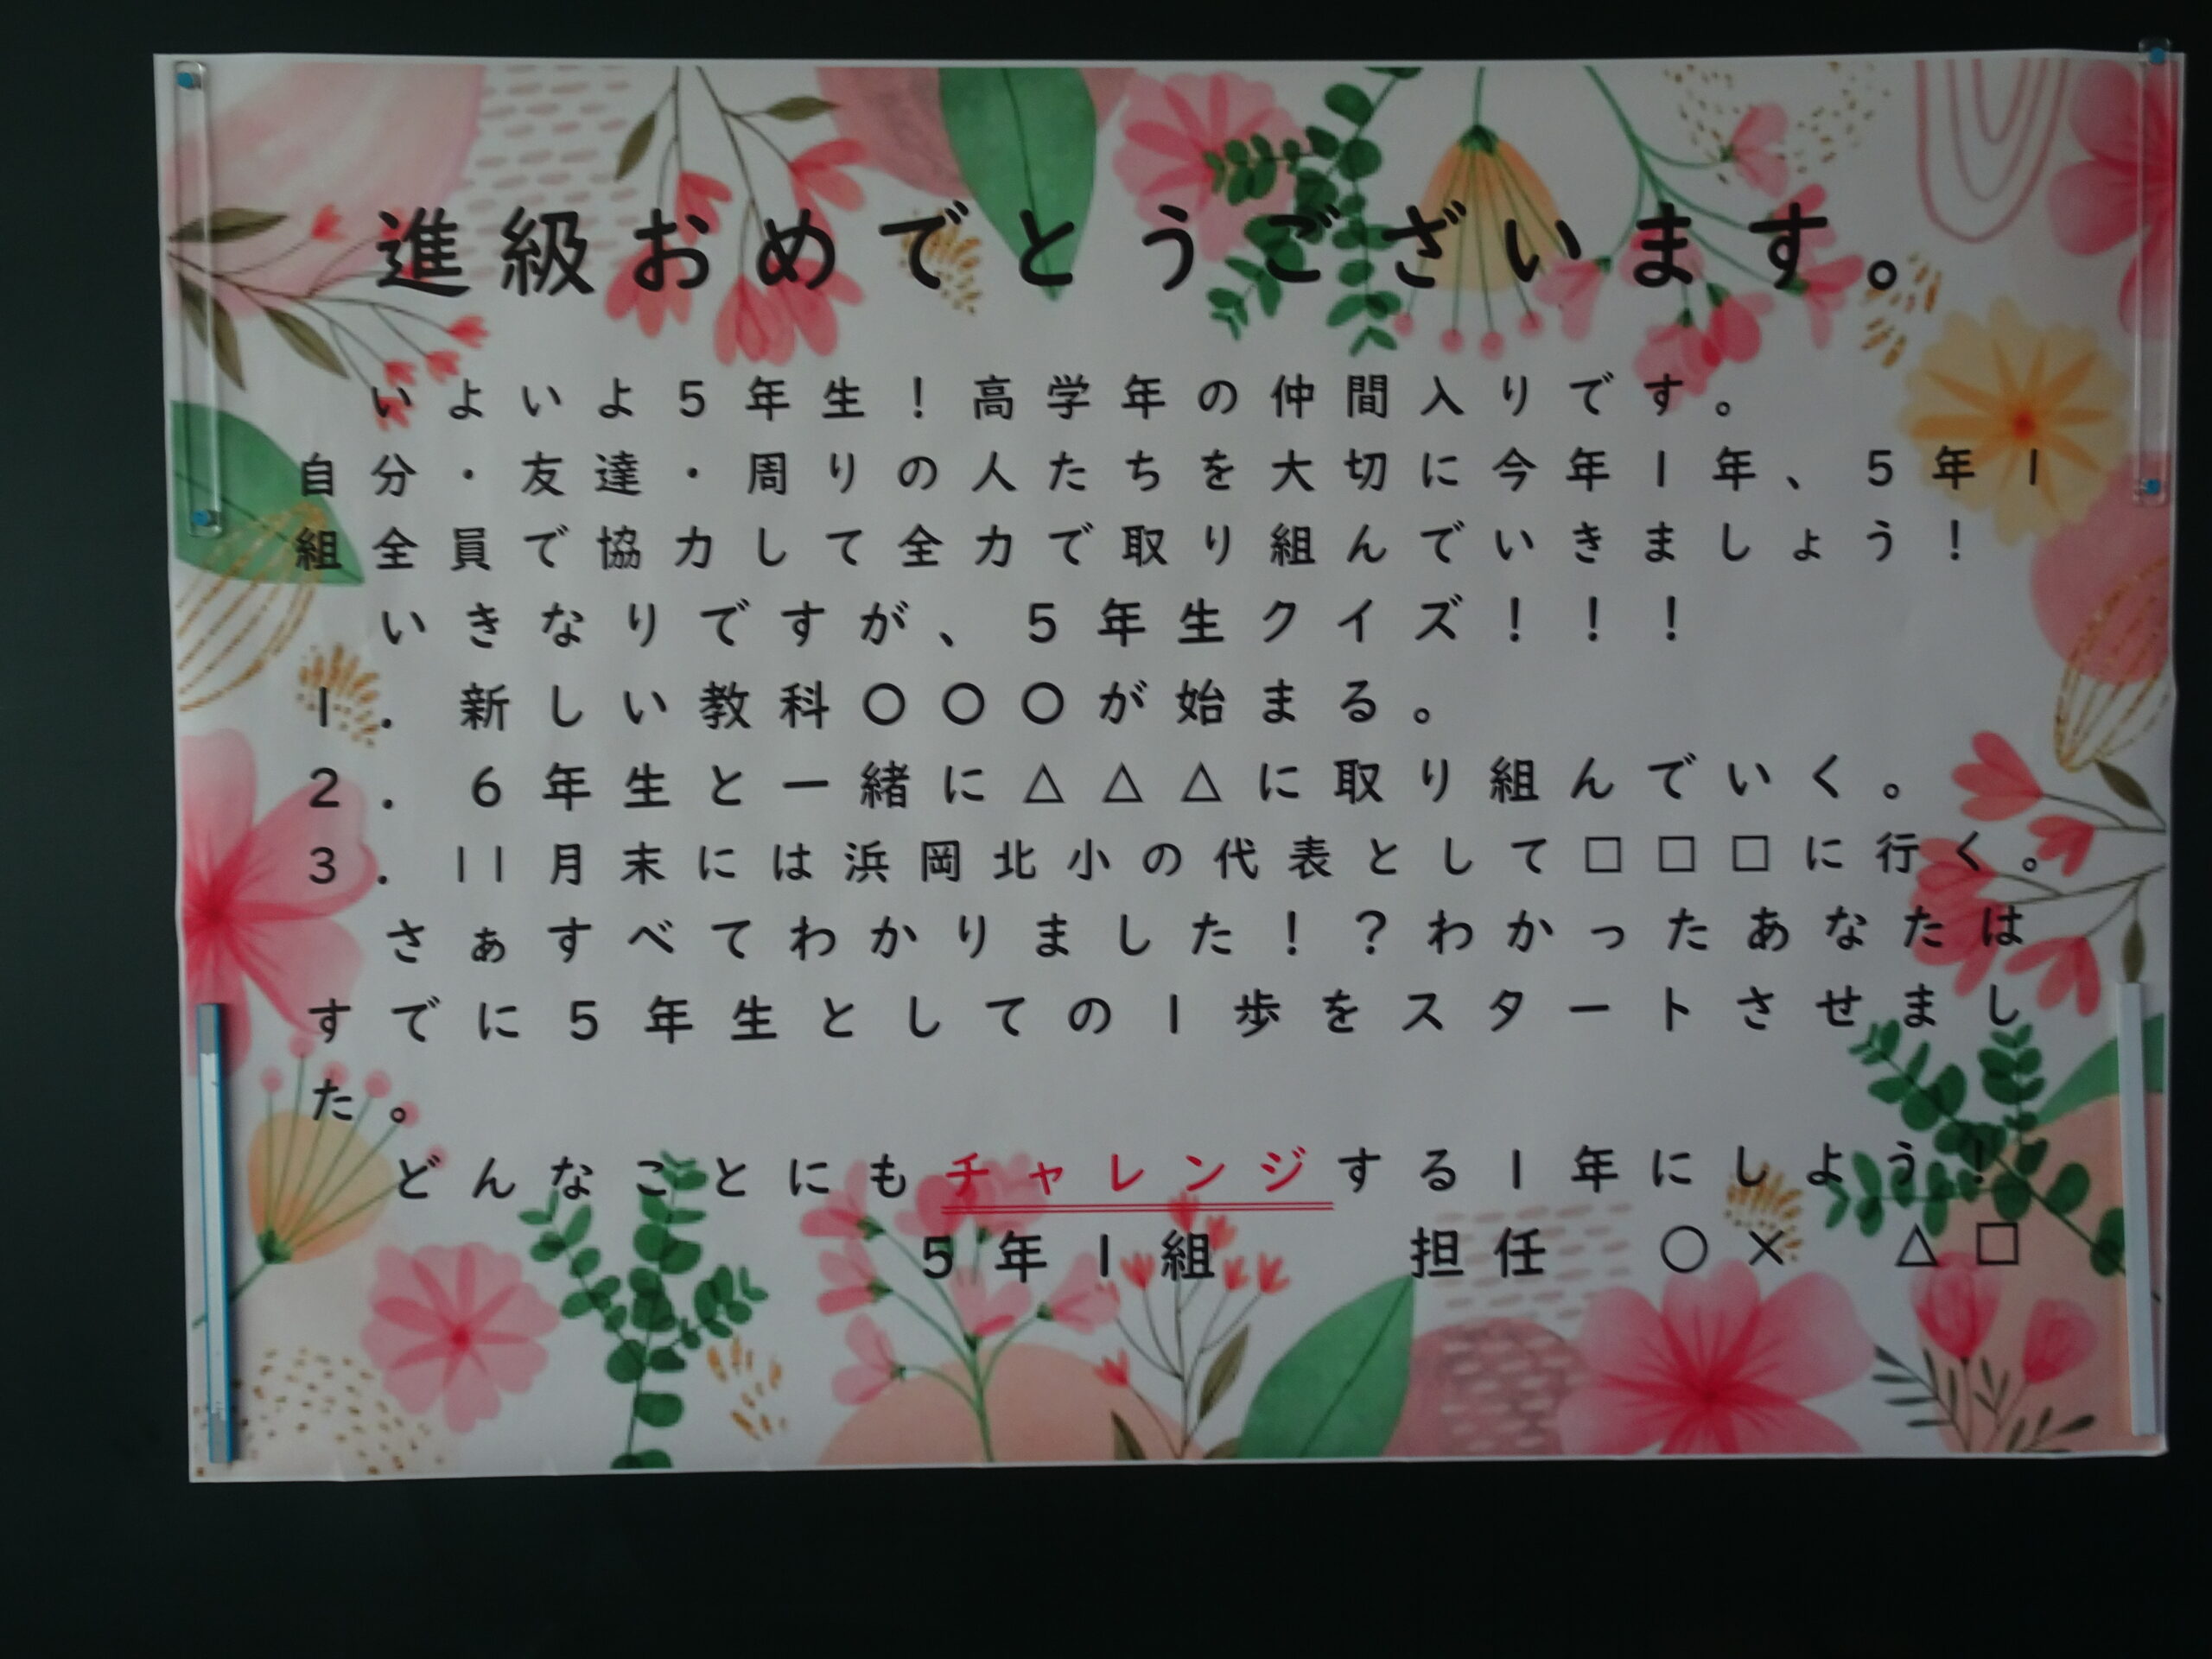 進級おめでとうございます。
いよいよ５年生！高学年の仲間入りです。
自分・友達・周りの人たちを大切に今年１年、５年１
組全員で協力して全力で取り組んでいきましょう！
いきなりですが、５年生クイズ！！！
１．新しい教科〇〇〇が始まる。
２．６年生と一緒に△△△に取り組んでいく。
３．11月末には浜岡北小の代表として□□□に行く。
さぁすべてわかりました！？わかったあなたは
すでに５年生としての１歩をスタートさせまし
た。
どんなことにもチャレンジする１年にしよう！
５年１組　担任　○×　△□